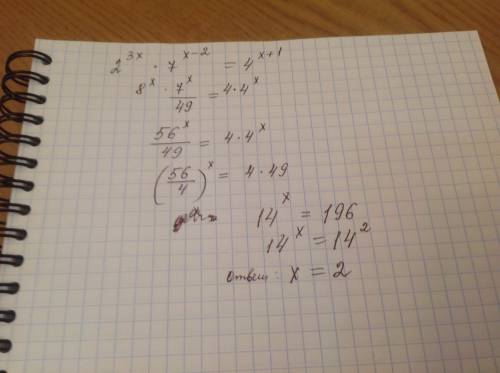 2^{3x} · 7^{x-2} = 4^{x+1}
8^x · 7^x/49 = 4·4^x
56^x/49 = 4·4^x
(56/4)^x = 4·49
14^x = 196
14^x = 14^2
Ответ: x = 2